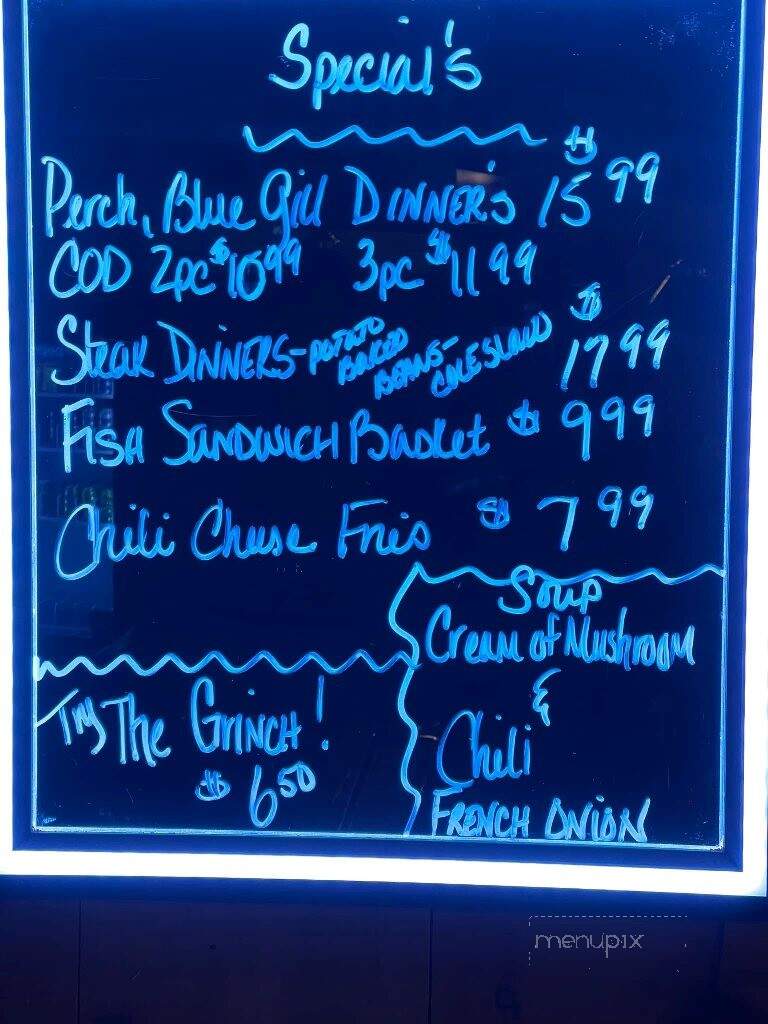 Special's
Perch, Blue Gill DINNER'S $15.99
COD 2pc $10.99 3pc $11.99
Steak DINNERS - POTATO BAKED BEANS - COLESLAW $17.99
FISH SANDWICH Basket $9.99
Chili Cheese Fries $7.99
Soup
Cream of Mushroom
&
Chili
FRENCH ONION
Try The GRINCH!
$6.50
menupix